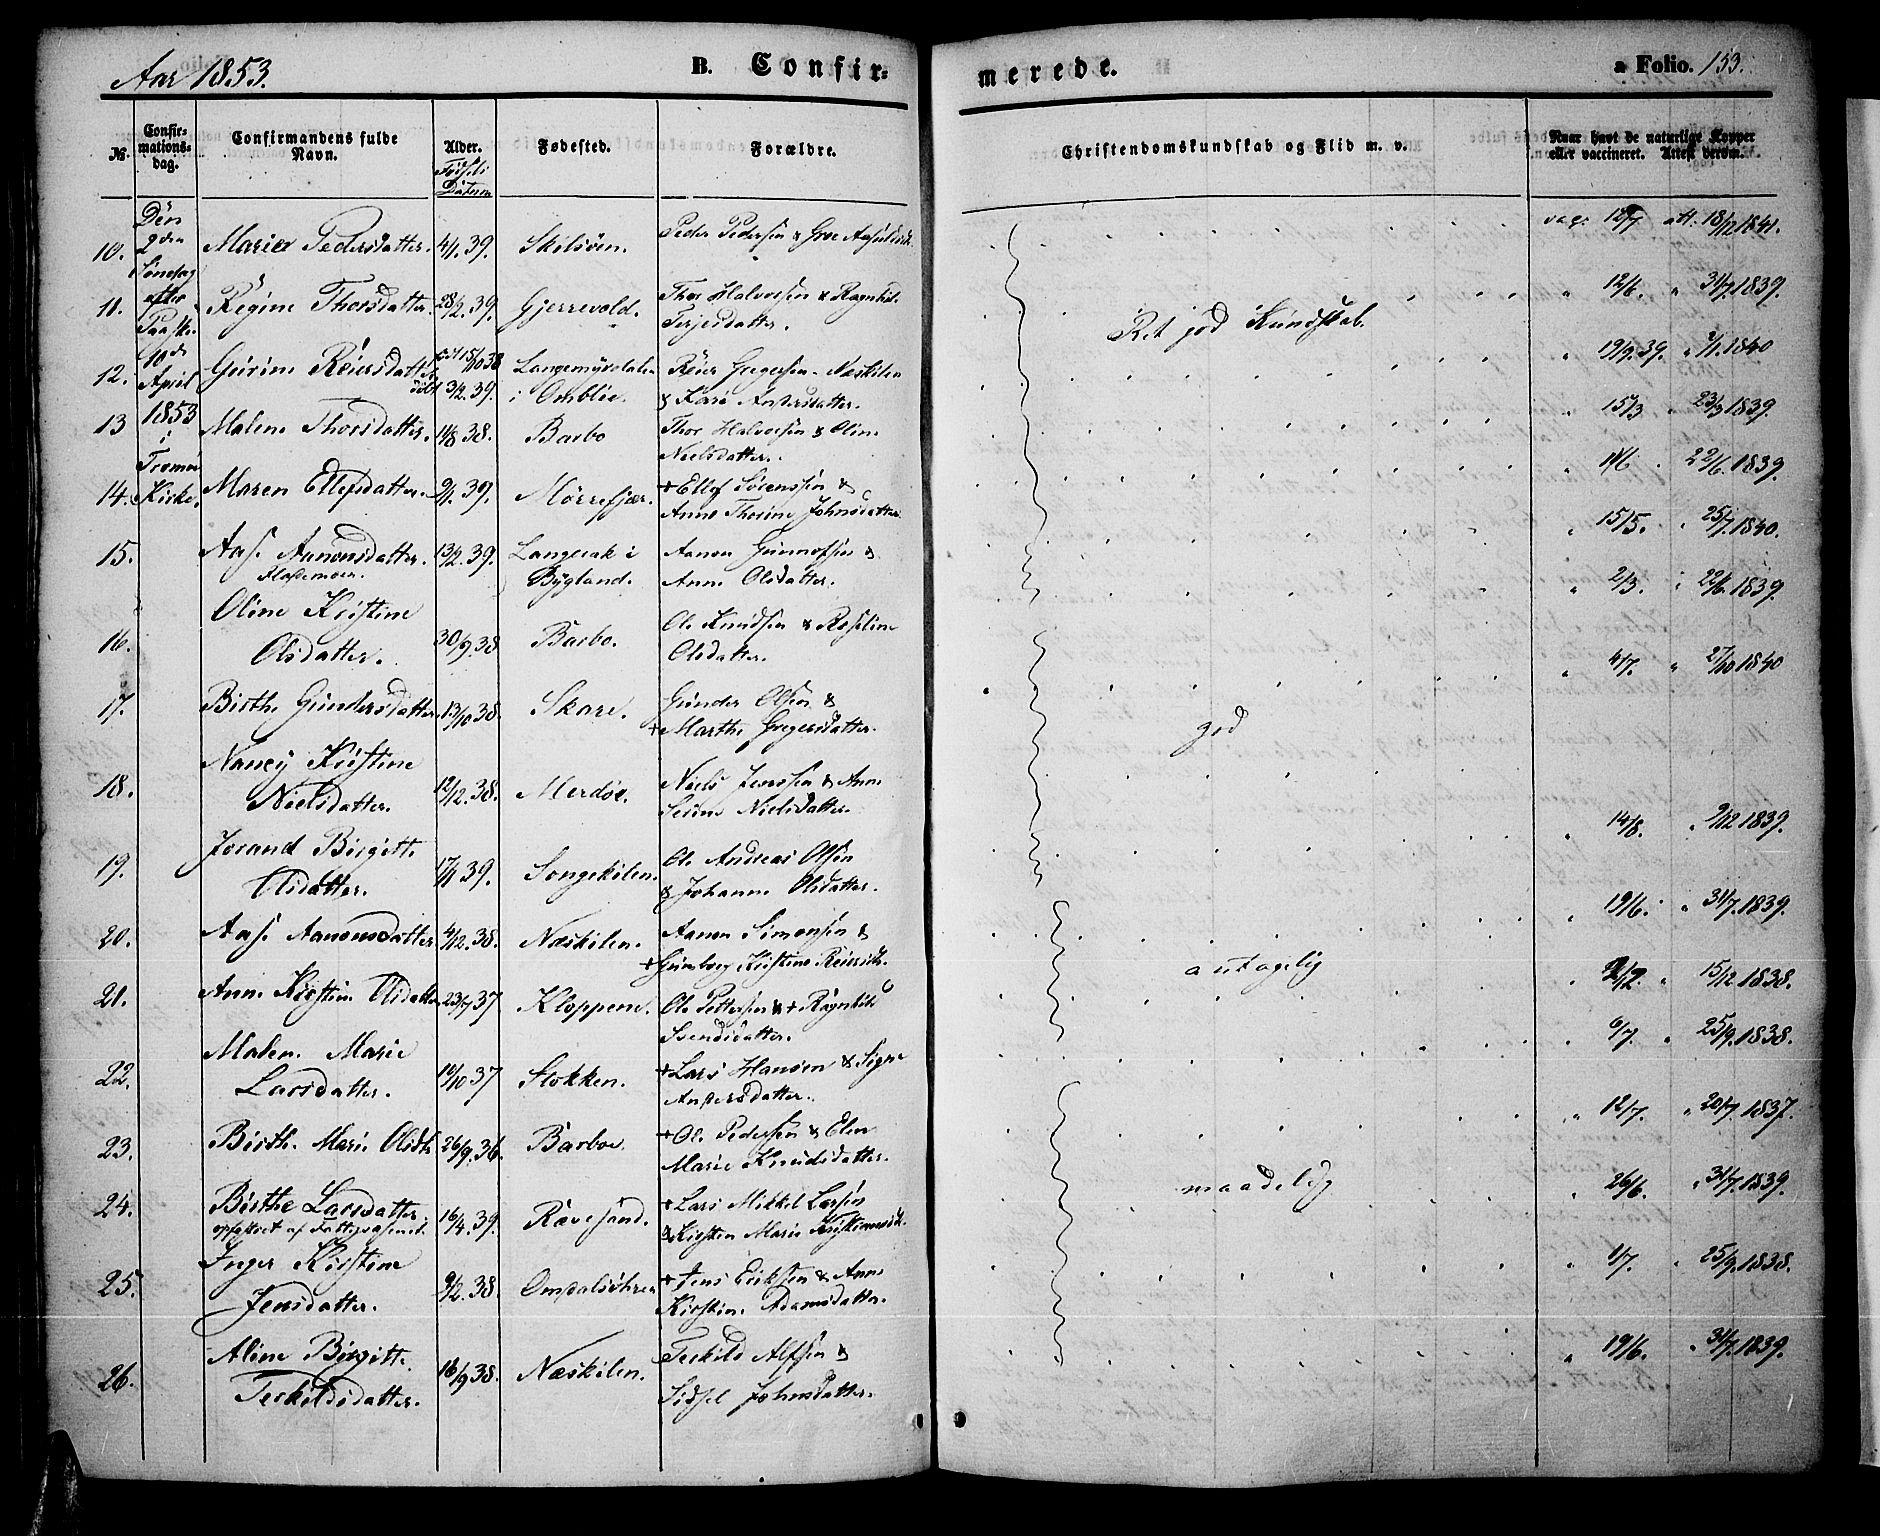 Aar 1853.
B. Confir-
merede.
a Folio. 153.
№.
Confir-
mations-
dag.
Confirmandens fulde
Navn.
Alder.
Fødsels
Datum
Fødested.
Forældre.
Christendomskundskab og Flid m. v.
Naar havt de naturlige Kopper
eller vaccineret. Attest derom.
Den
2den
Søndag
efter
Paaske
10de
April
1853
i
Tromø
Kirke.
10. Maria Pedersdatter. 4/1. 39. Skilsøen. Peder Pedersen & vac. 12/7 att. 18/12 1841.
11. Regine Thorsdatter. 28/2. 39. Gjerrevold. Thor Halvorsen & Ragnhild
Terjesdatter. Ret god Kundskab. " 12/6. " 31/7. 1839.
12. Gurine Reiersdatter 15/10 38
døbt 3/2. 39. Langemyrdalen
i Omblie. Reier Gregersen Næskilen
& Kari Andersdatter. " 19/9. 39. " 2/1. 1840
13 Malene Thorsdatter. 11/8. 38. Barbo Thor Halvorsen & Oline
Nielsdatter. " 15/3 " 23/3 1839.
14. Maren Ellefsdatter. 9/1. 39. Mørrefjær. + Ellef Sørenssen &
Anne Thorine Johnsdatter. " 11/6. 22/6. 1839.
15. Aase Aanonsdatter. 13/2. 39. Langerak i
Bygland. Aanon Gunnufsen &
Anne Olsdatter. " 15/5. " 25/7. 1840.
16. Oline Kristine
Olsdatter. 30/9. 38 Barbo. Ole Knudsen & Roseline
Olsdatter. " 2/3. " 22/6. 1839.
17. Birthe Gundersdatter. 13/10. 38. Skare. Gunder Olsen &
+ Marthe Gregersdatter. god " 4/7. " 27/10 1840
18. Nancy Kristine
Nielsdatter. 12/12. 38. Merdøe. Niels Jenssen & Anne
Serine Nielsdatter.
19. Jorand Birgitte
Olsdatter. 17/1 39. Songekilen. Ole Andreas Olsen
& Johanne Olsdatter. " 14/8. " 9/12 1839.
20. Aase Aanonsdatter 4/12. 38. Næskilen. Aanon Simonsen &
+ Gunborg Kirstine Reiersdt. " 19/6. " 31/7. 1839.
21. Anne Kirstine Olsdatter 23/7 37 Kloppene. Ole Pettersen & + Ragnhild
Svendsdatter. antagelig " 2/12. " 15/12 1838.
22. Malene Marie
Larsdatter. 10/10 37 Stokken. + Lars Hansen & Signe
Andersdatter. " 6/7. " 25/9. 1838.
23. Birthe Marie Olsdtr. 26/9. 36. Barboe. + Ole Pedersen & Elen
Marie Knudsdatter. " 12/7. " 20/7. 1837.
24. Birthe Larsdatter.
opfostret af Fattigvæsenet. 16/4. 39. Rævesand. + Lars Mikkel Larsen
& Kirsten Marie maadelig " 26/6. " 31/7. 1839.
25. Inger Kirstine
Jensdatter. 9/2. 38. + Jens Eriksen & Anne
Kirstine Adamsdatter. " 1/7. " 25/9. 1838.
26. Aline Birgitte
Terkildsdatter. 16/9 38. Næskilen. Terkild Alfsen &
Sidsel Johnsdatter. " 19/6. " 31/7. 1839.